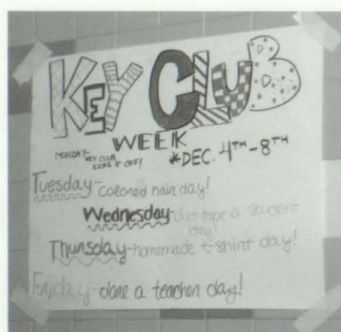 KEY CLUB
WEEK
MONDAY-
KEY CLUB
KICKS IT OFF!
*DEC. 4TH-8TH
Tuesday- colored hair day!
Wednesday- duct tape a student
day!
Thursday- homemade t-shirt day!
Friday- dare a teacher day!